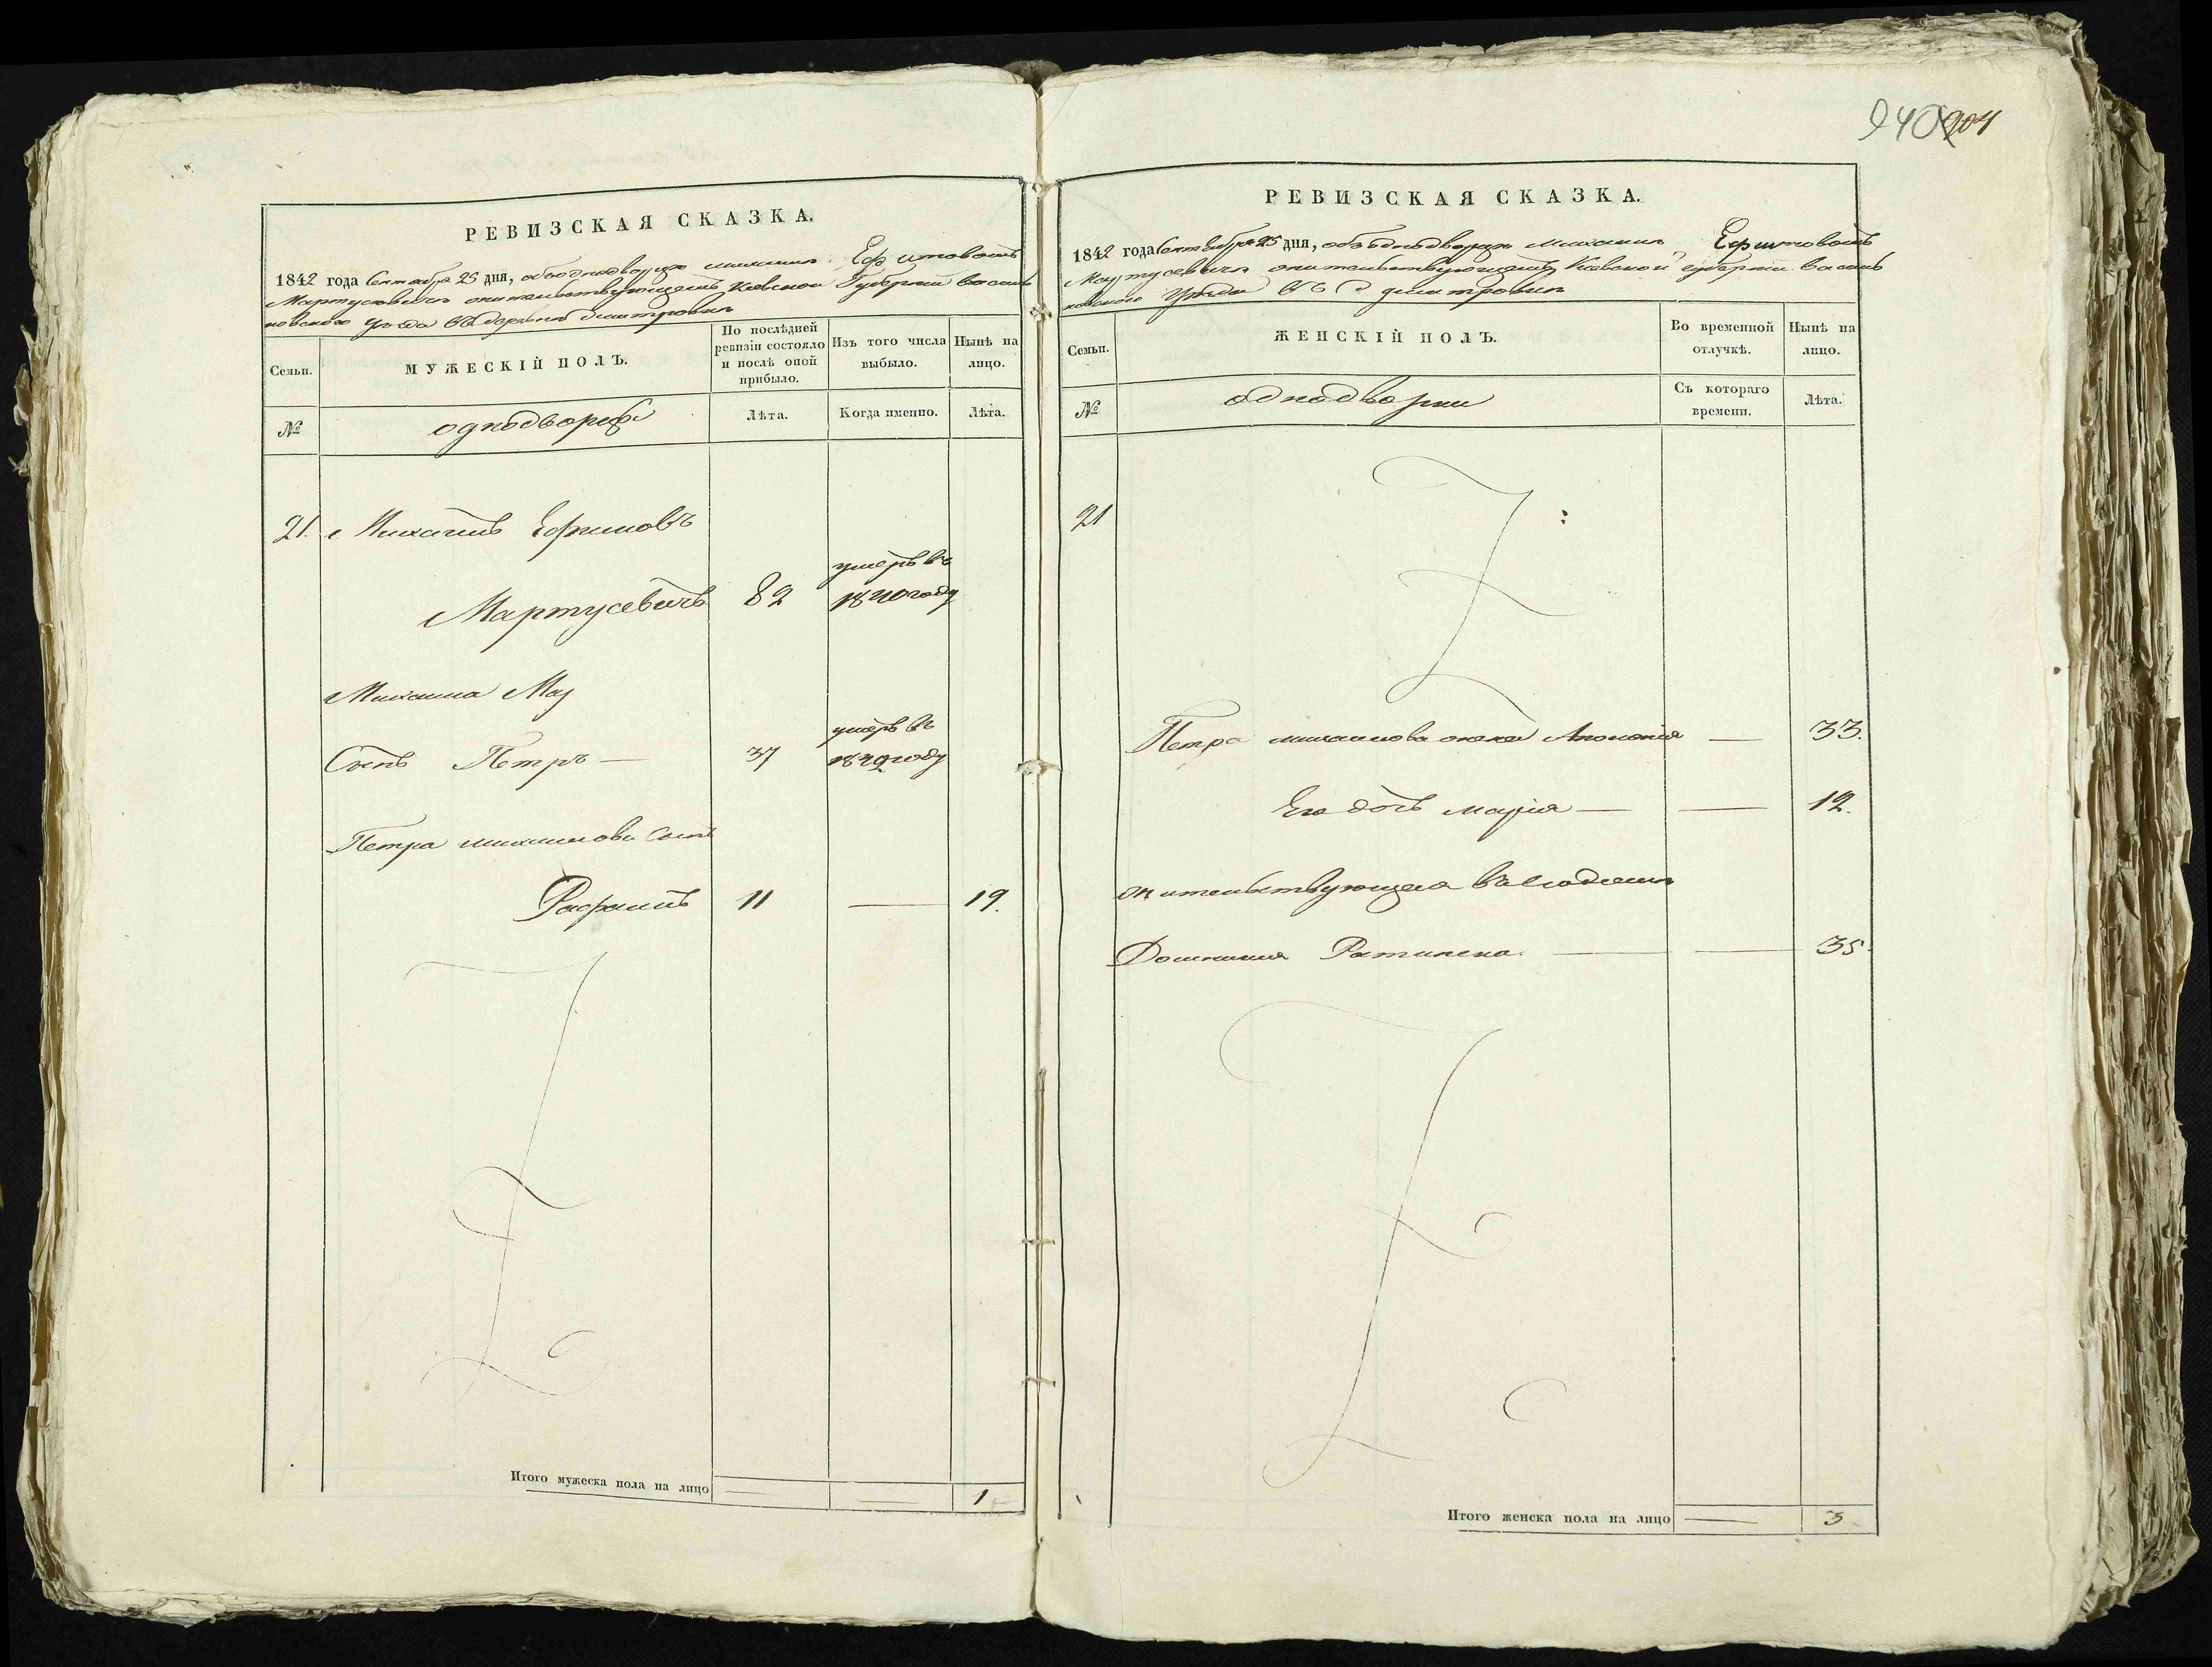 240 204
РЕВИЗСКАЯ СКАЗКА.
1842 года Сентября 25 дня, объ однодворце Михаиле Ефимовомъ
Мартусевиче жительствующемъ Киевской Губернии Василь
ковского уезда въ деревне Дмитровке
Семьи.
МУЖЕСКІЙ ПОЛЪ.
По послѣдней
ревизіи состояло
и послѣ оной
прибыло.
Изъ того числа
выбыло.
Нынѣ на
лицо.
№
однодворцы
Лѣта.
Когда именно.
Лѣта.
21. Михаилъ Ефимовъ
Мартусевичъ 82 умеръ въ
1840 году
Михаила Мар
Сынъ Петръ — 37 умеръ въ
1839 году
Петра михаилова Сынъ
Рафаилъ 11 — 19.
Итого мужеска пола на лицо — — 1
РЕВИЗСКАЯ СКАЗКА.
1842 года Сентября 25 дня, объ однодворце Михаиле Ефимовомъ
Мартусевиче жительствующемъ Киевской губернии Василь
ковского Уезда въ д Дмитровке
Семьи.
ЖЕНСКІЙ ПОЛЪ.
Во временной
отлучкѣ.
Нынѣ на
лицо.
№
однодворки
Съ котораго
времени.
Лѣта.
21
Петра михаилова жена Аполонія — 33.
Его дочь Марія — — 12.
жительствующая
Ратинска — — 35.
Итого женска пола на лицо — 3